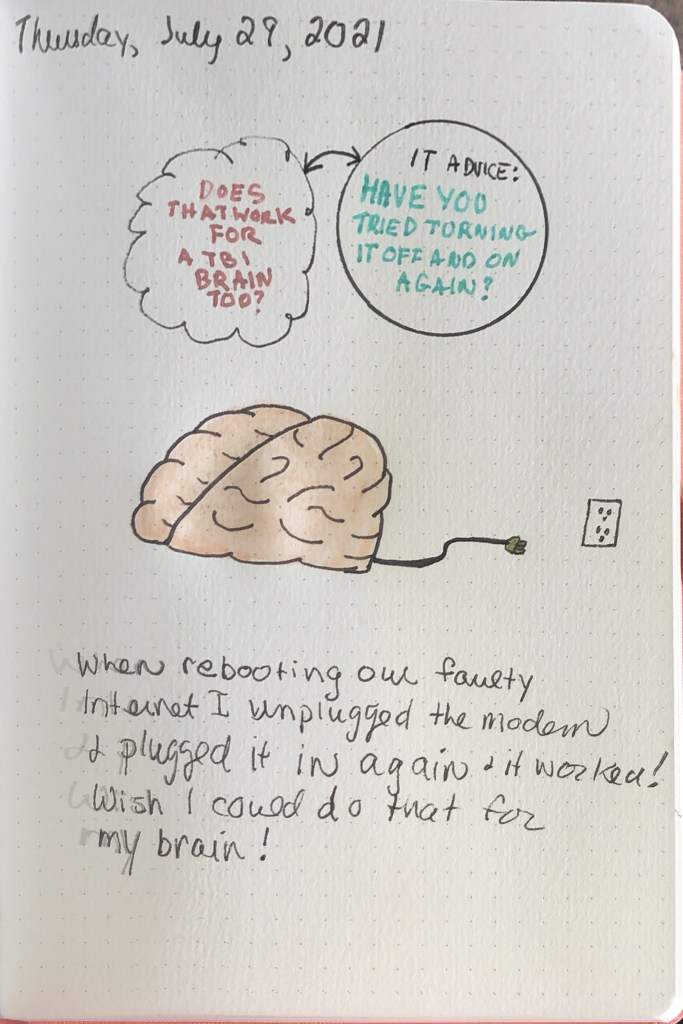 Thursday, July 29, 2021
DOES
THAT WORK
FOR
A TBI
BRAIN
TOO?
IT ADVICE:
HAVE YOU
TRIED TURNING
IT OFF AND ON
AGAIN?
When rebooting our faulty
Internet I unplugged the modem
& plugged it in again & it worked!
Wish I could do that for
my brain!